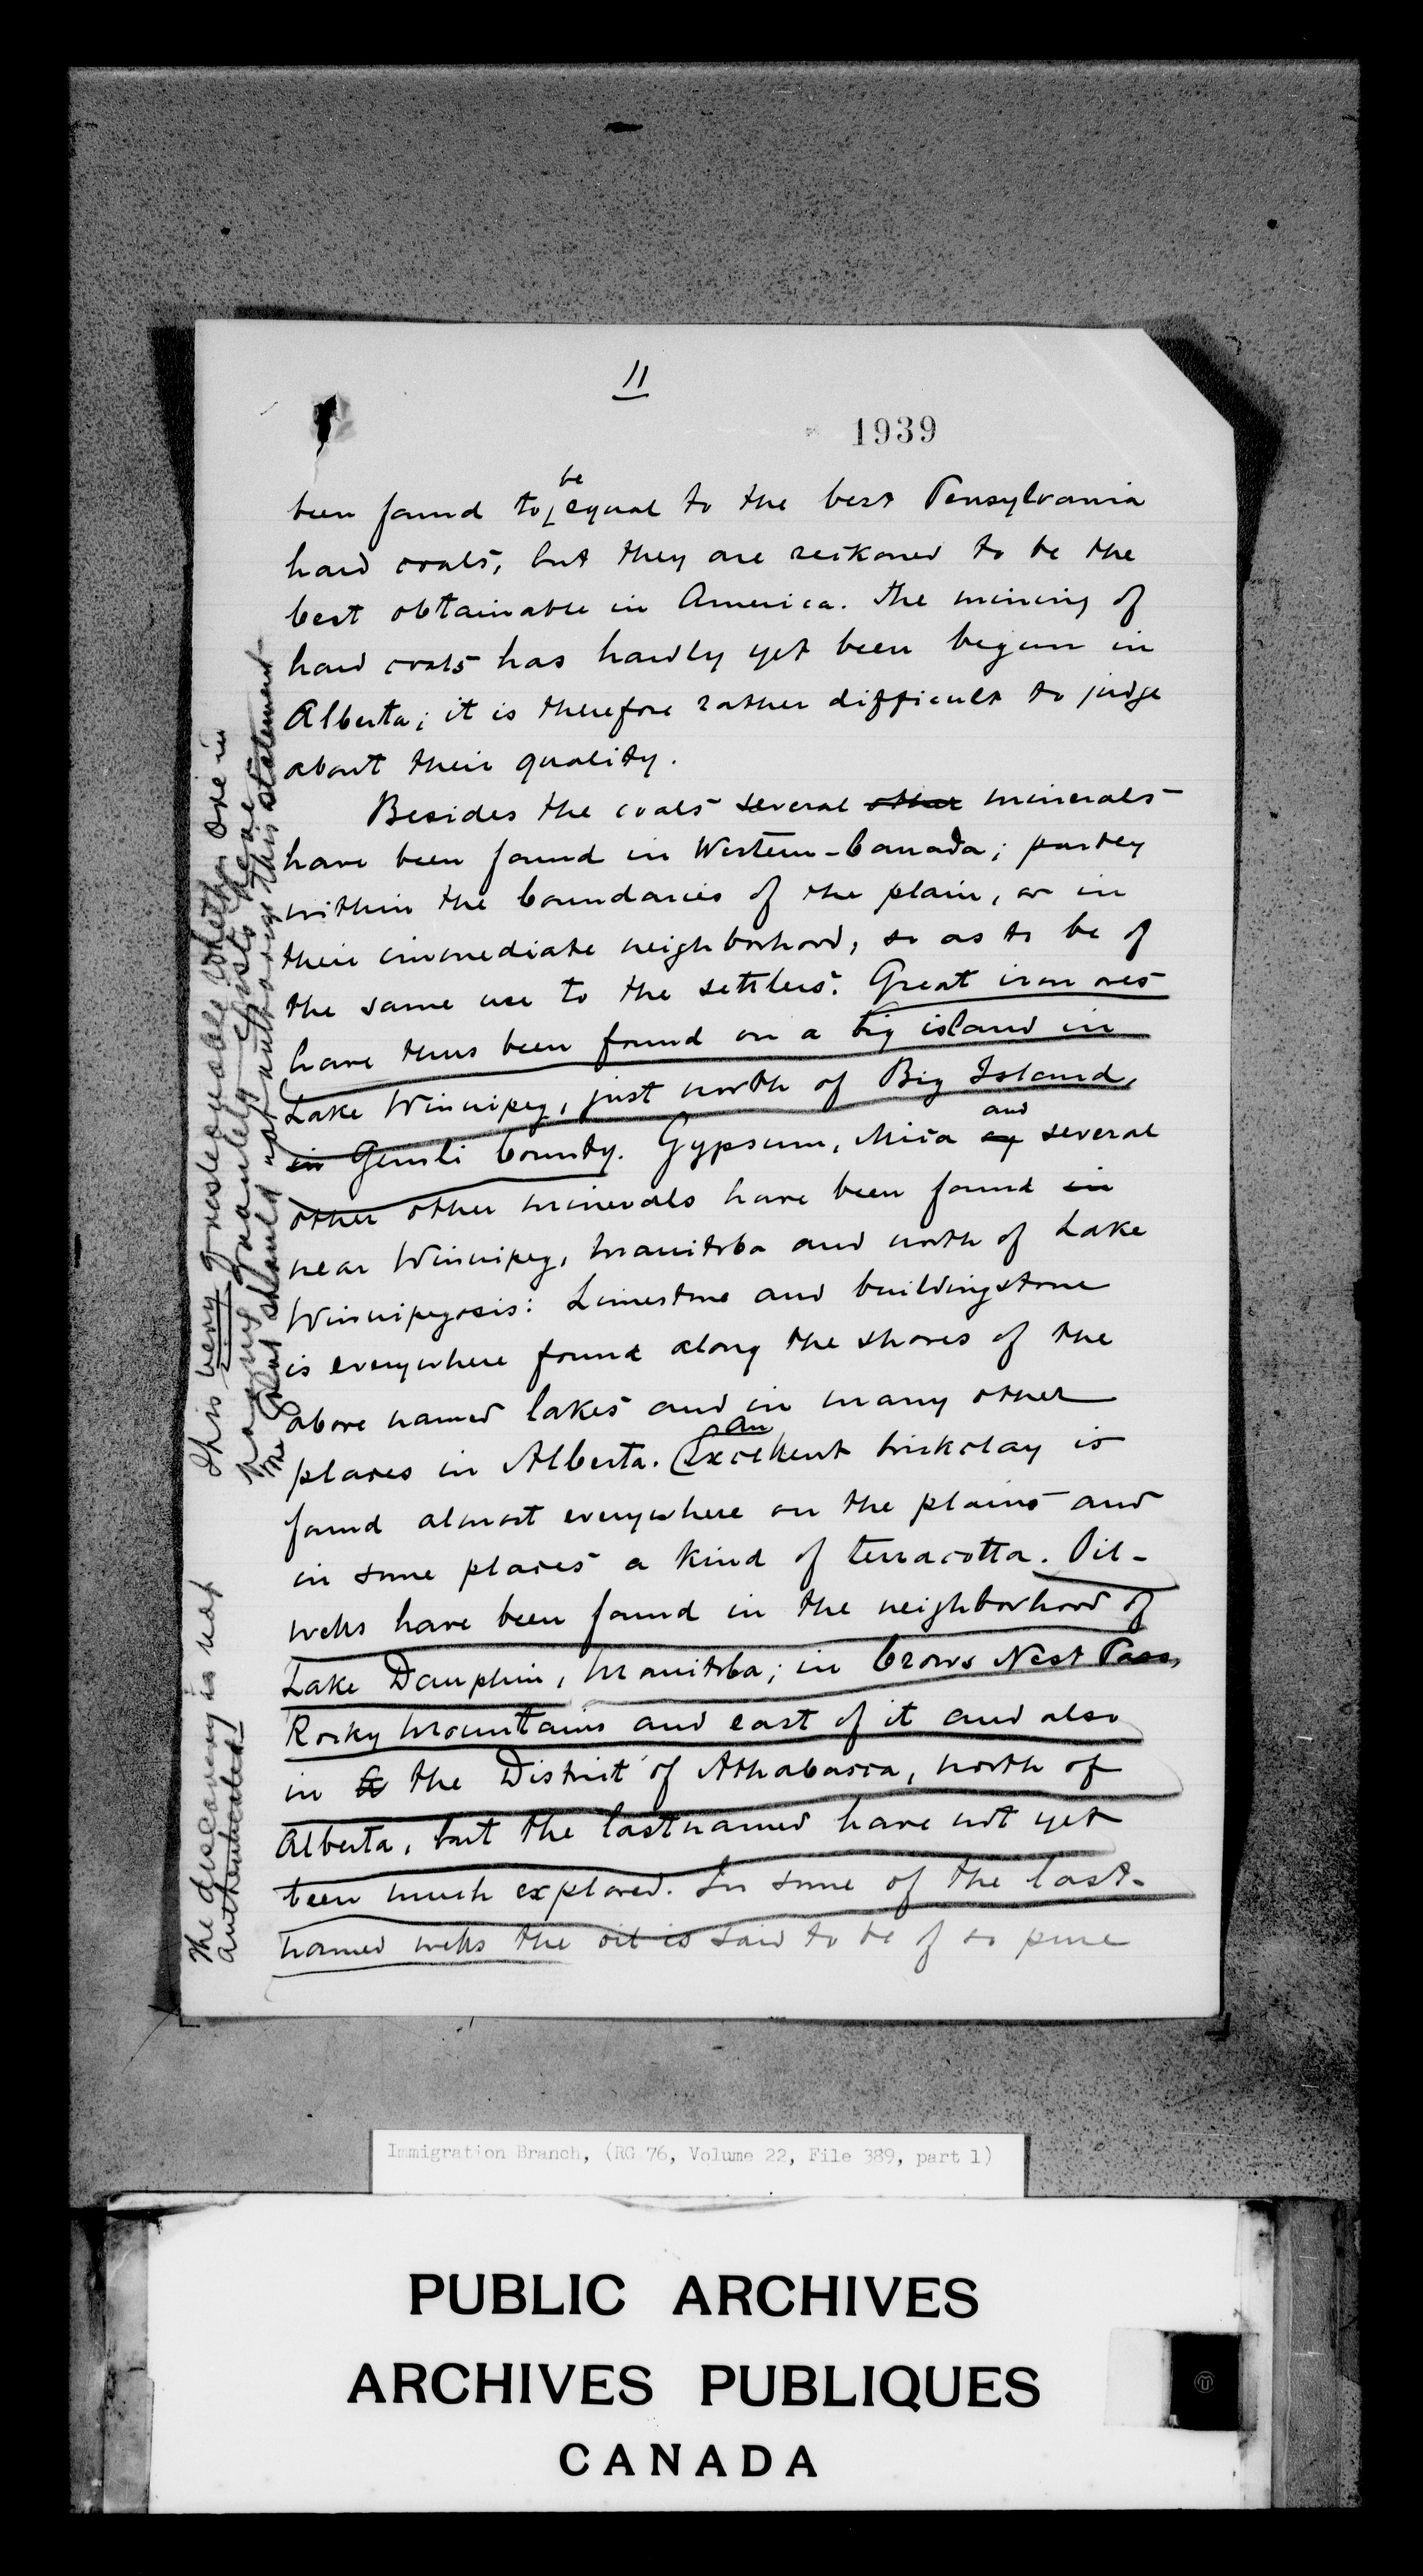 11
1939
been found to be equal to the best Pensylvania
hard coals, but they are reckoned to be the
best obtainable in America. The mining of
hard coals has hardly yet been begun in
Alberta; it is therefore rather difficult to judge
about their quality.
Besides the coals several other minerals
have been found in Western-Canada; partly
within the boundaries of the plain, or in
their immediate neighborhood, so as to be of
the same use to the settlers. Great iron ores
have thus been found on a big island in
Lake Winnipeg, just north of Big Island,
in Gimli County. Gypsum, Mica and several
other other minerals have been found in
near Winnipeg, Manitoba and north of Lake
Winnipegosis: Limestone and buildingstone
is everywhere found along the shores of the
above named lakes and in many other
places in Alberta. An Excellent brickclay is
found almost everywhere on the plains and
in some places a kind of terracotta. Oil-
wells have been found in the neighborhood of
Lake Dauphin, Manitoba; in Crows Nest Pass,
Rocky Mountains and east of it and also
in the District of Athabasca, north of
Alberta, but the lastnamed have not yet
been much explored. In some of the last-
named wells the oil is said to be of so pure
This is very questionable whether ore in
paying quantity exists here
The Govt should not authorize this statement
The discovery is not
authenticated
Immigration Branch, (RG 76, Volume 22, File 389, part 1)
PUBLIC ARCHIVES
ARCHIVES PUBLIQUES
CANADA